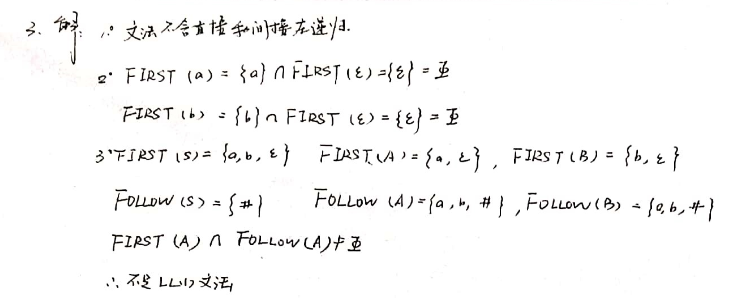 3. 解: 1° 文法不含直接和间接左递归.
2° FIRST (a) = {a} ∩ FIRST (ε) = {ε} = Φ
FIRST (b) = {b} ∩ FIRST (ε) = {ε} = Φ
3° FIRST (S) = {a, b, ε} FIRST (A) = {a, ε}, FIRST (B) = {b, ε}
FOLLOW (S) = {#} FOLLOW (A) = {a, b, #}, FOLLOW (B) = {a, b, #}
FIRST (A) ∩ FOLLOW (A) ≠ Φ
∴ 不是 LL(1) 文法